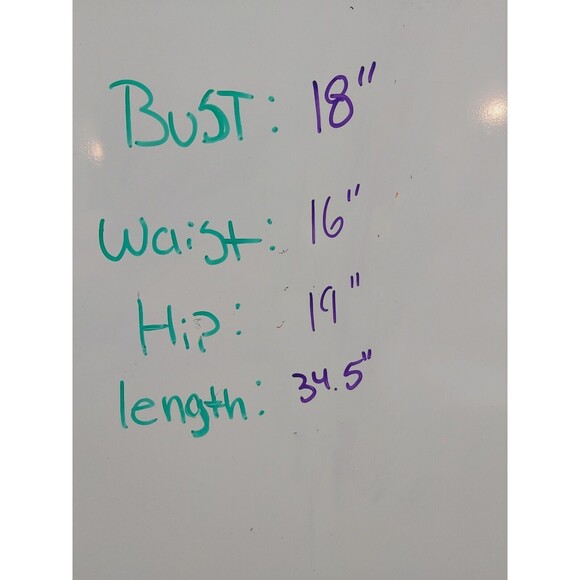 BUST: 18"
Waist: 16"
Hip: 19"
length: 34.5"